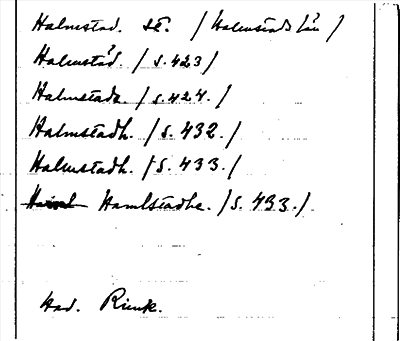 Halmstad. st. /Halmstads län/
Halmstad. /S. 423/
Halmstads. /S. 424./
Halmstadh. /S. 432./
Halmstadh. /S. 433./
Hamlstadhe. /S. 433./
Had. Rimk.